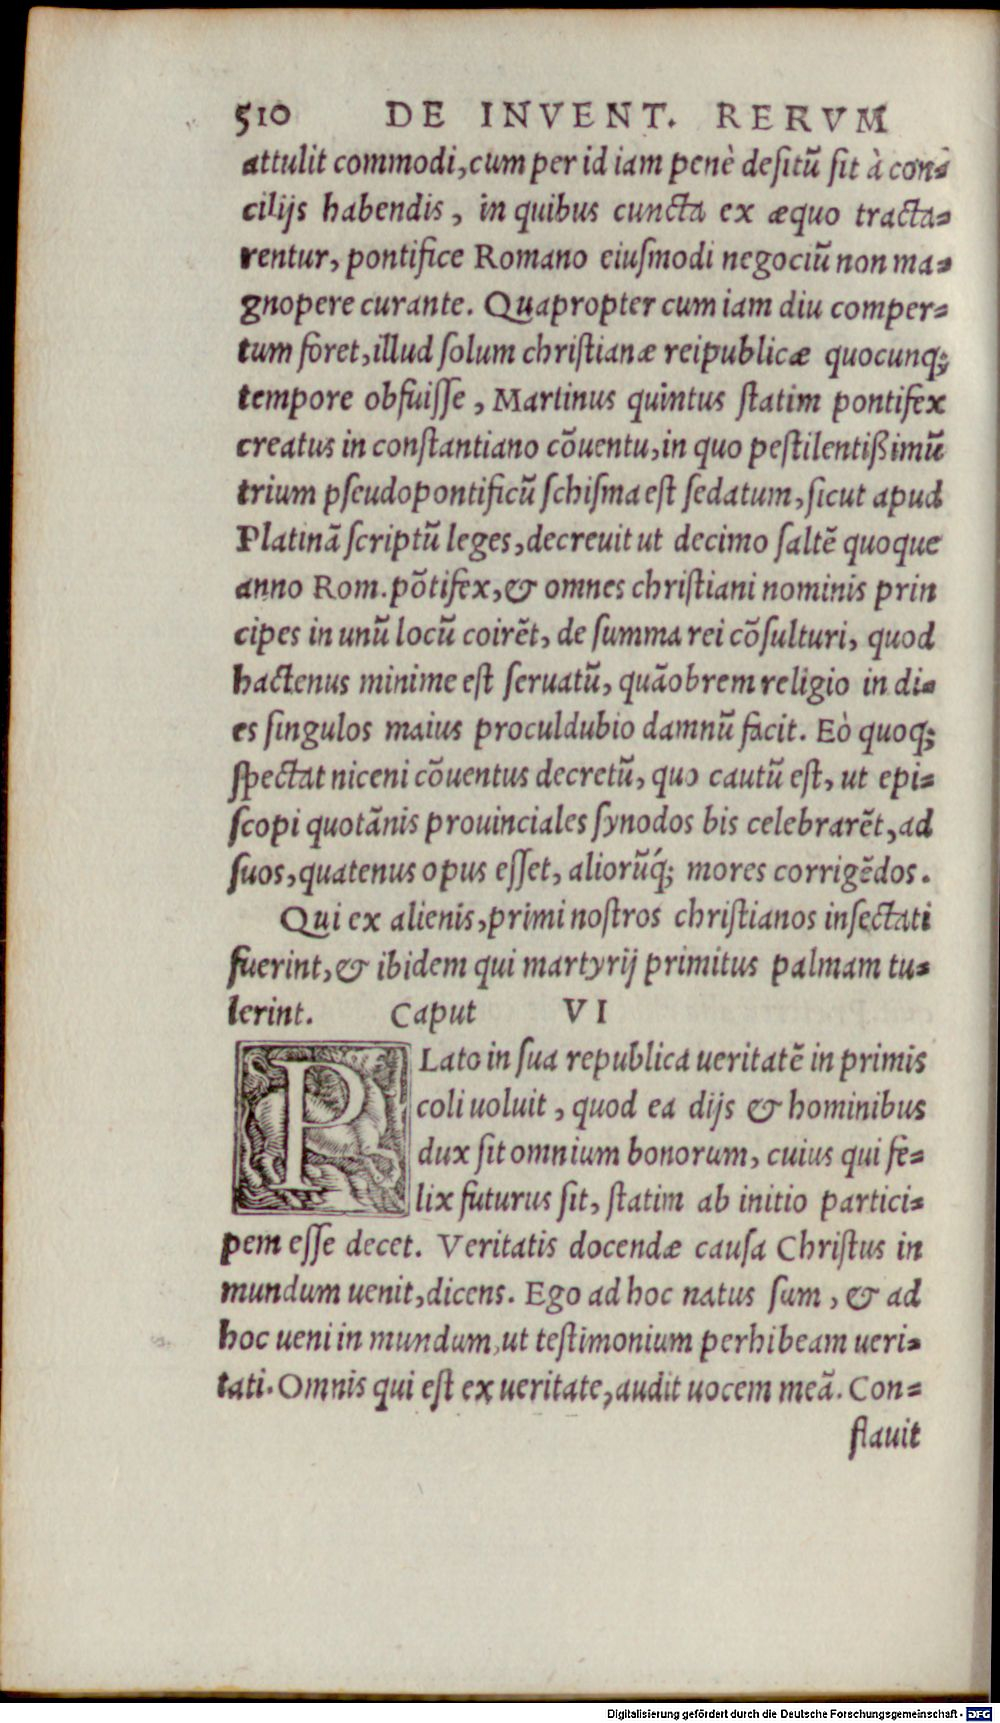 510 DE INVENT. RERVM
attulit commodi, cum per id iam penè desitū sit à con=
cilijs habendis, in quibus cuncta ex æquo tracta=
rentur, pontifice Romano eiusmodi negociū non ma=
gnopere curante. Quapropter cum iam diu comper=
tum foret, illud solum christianæ reipublicæ quocunq;
tempore obfuisse, Martinus quintus statim pontifex
creatus in constantiano cōuentu, in quo pestilentißimū
trium pseudopontificū schisma est sedatum, sicut apud
Platinā scriptū leges, decreuit ut decimo saltē quoque
anno Rom. pōtifex, & omnes christiani nominis prin
cipes in unū locū coirēt, de summa rei cōsulturi, quod
hactenus minime est seruatū, quāobrem religio in di=
es singulos maius proculdubio damnū facit. Eò quoq;
spectat niceni cōuentus decretū, quo cautū est, ut epi=
scopi quotānis prouinciales synodos bis celebrarēt, ad
suos, quatenus opus esset, aliorūq́; mores corrigēdos.
Qui ex alienis, primi nostros christianos insectati
fuerint, & ibidem qui martyrij primitus palmam tu=
lerint. Caput VI
PLato in sua republica ueritatē in primis
coli uoluit, quod ea dijs & hominibus
dux sit omnium bonorum, cuius qui fe=
lix futurus sit, statim ab initio partici=
pem esse decet. Veritatis docendæ causa Christus in
mundum uenit, dicens. Ego ad hoc natus sum, & ad
hoc ueni in mundum, ut testimonium perhibeam ueri=
tati. Omnis qui est ex ueritate, audit uocem meā. Con=
flauit
Digitalisierung gefördert durch die Deutsche Forschungsgemeinschaft - DFG